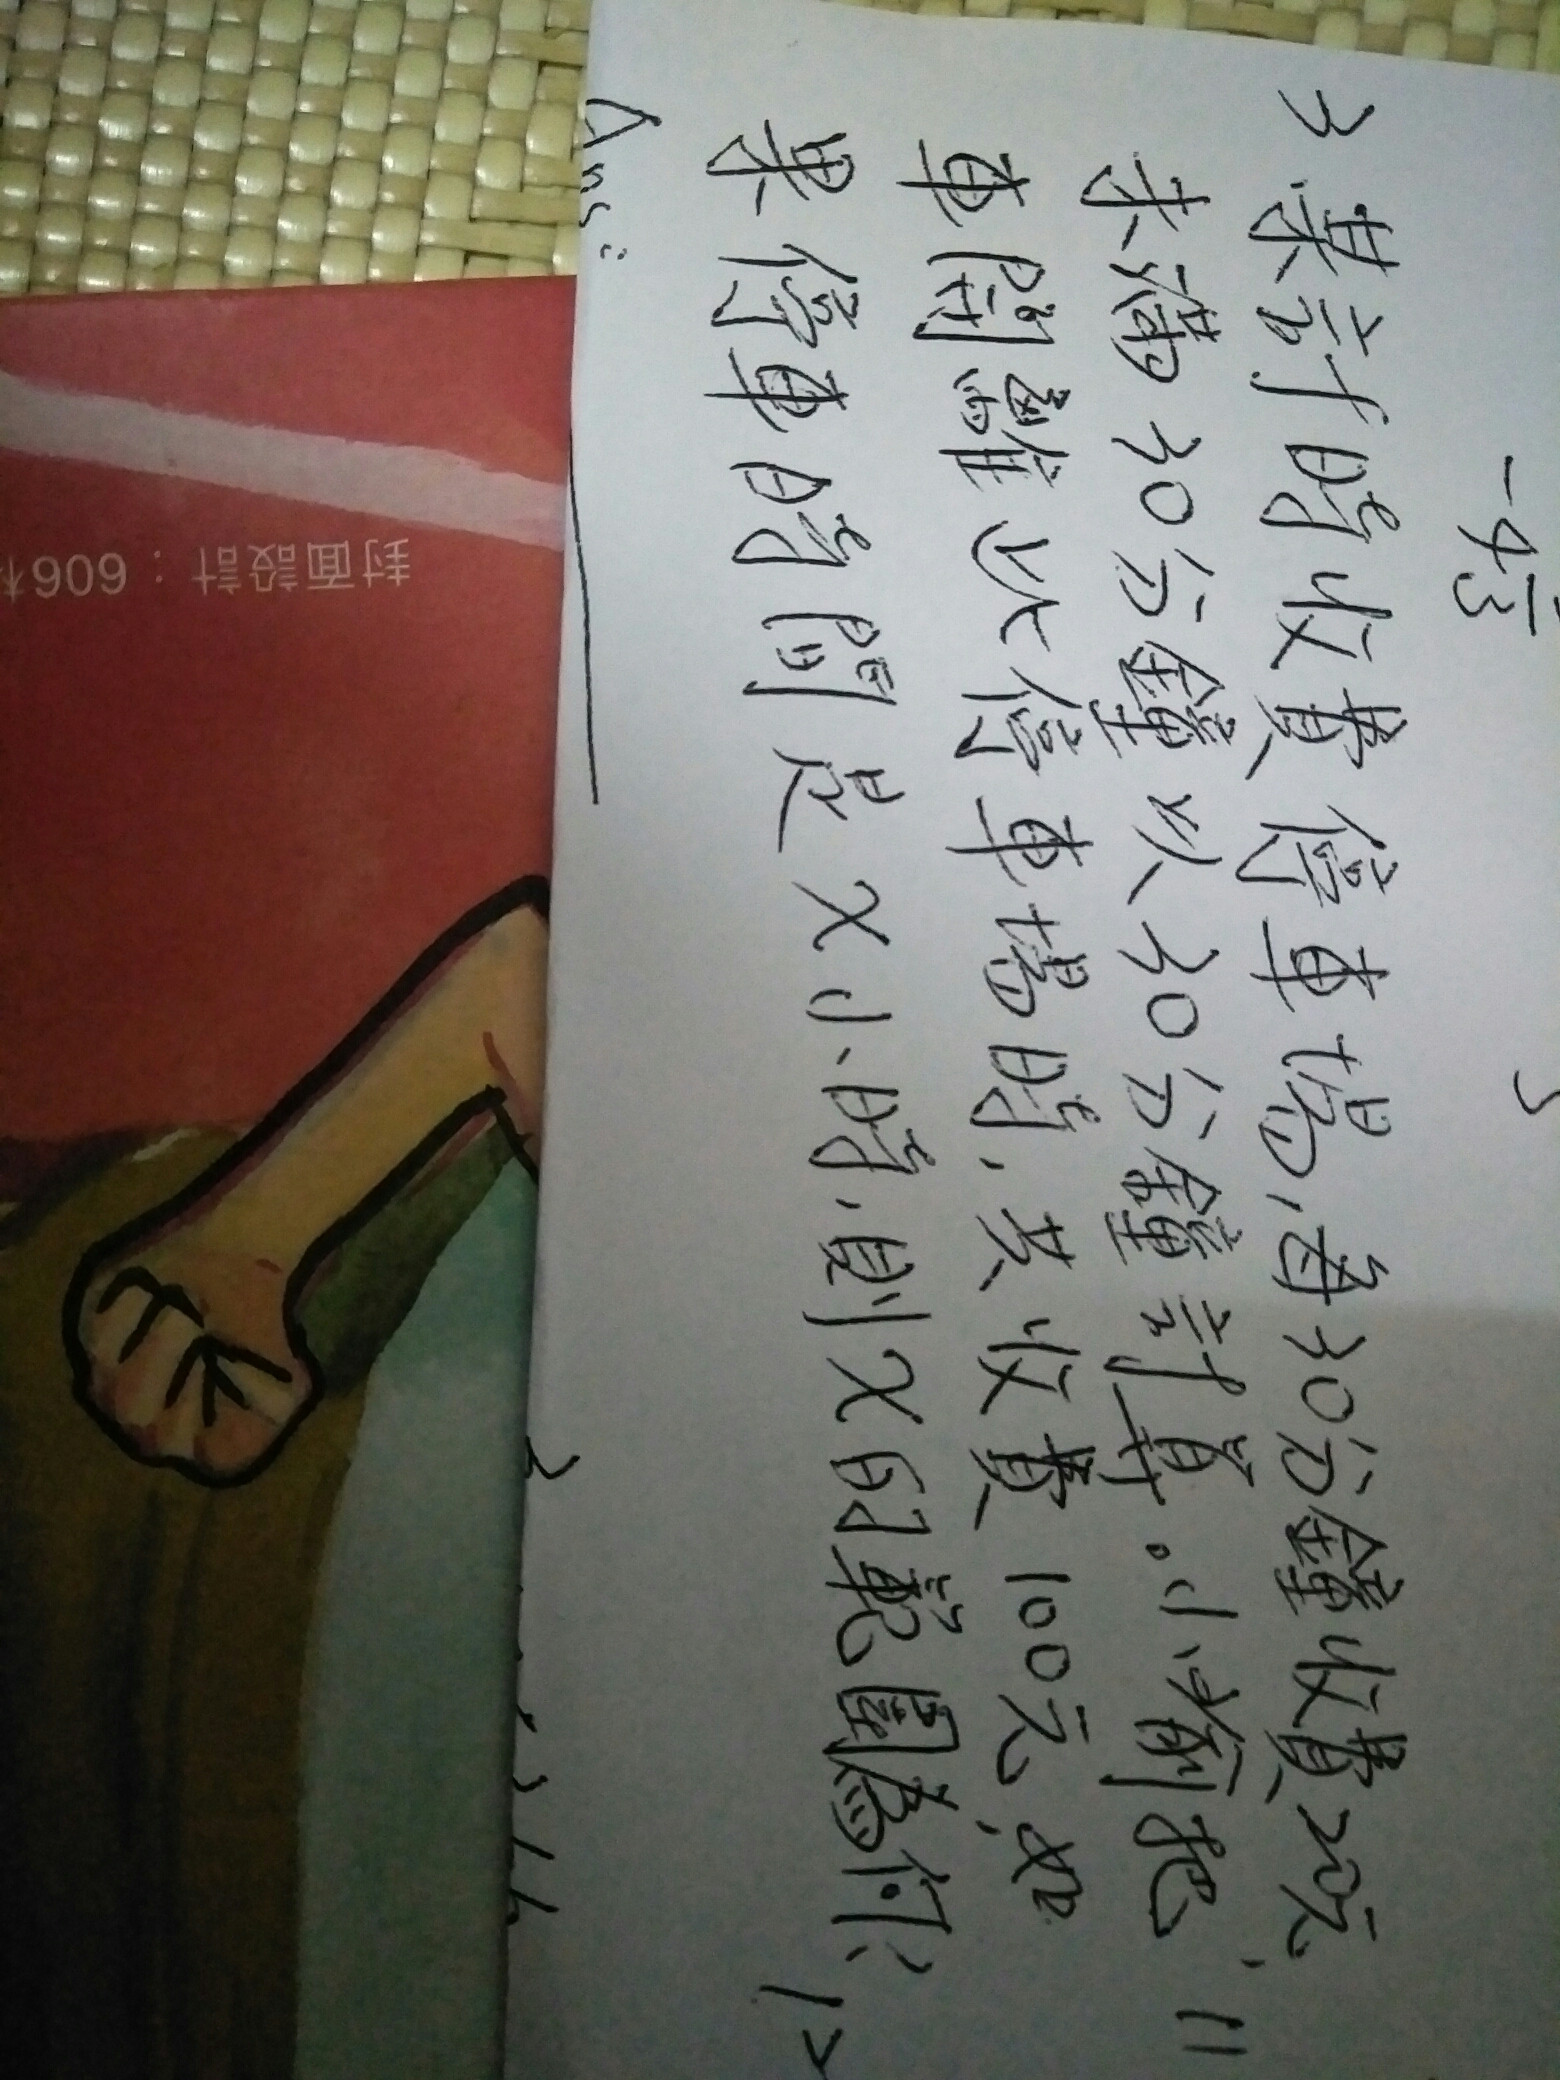 3. 某計時收費停車場,每30分鐘收費20元,
未滿30分鐘以30分鐘計算。小俞把
車開離此停車場時,共收費100元,如
果停車時間是x小時,則x的範圍為何?
Ans:
封面設計:606